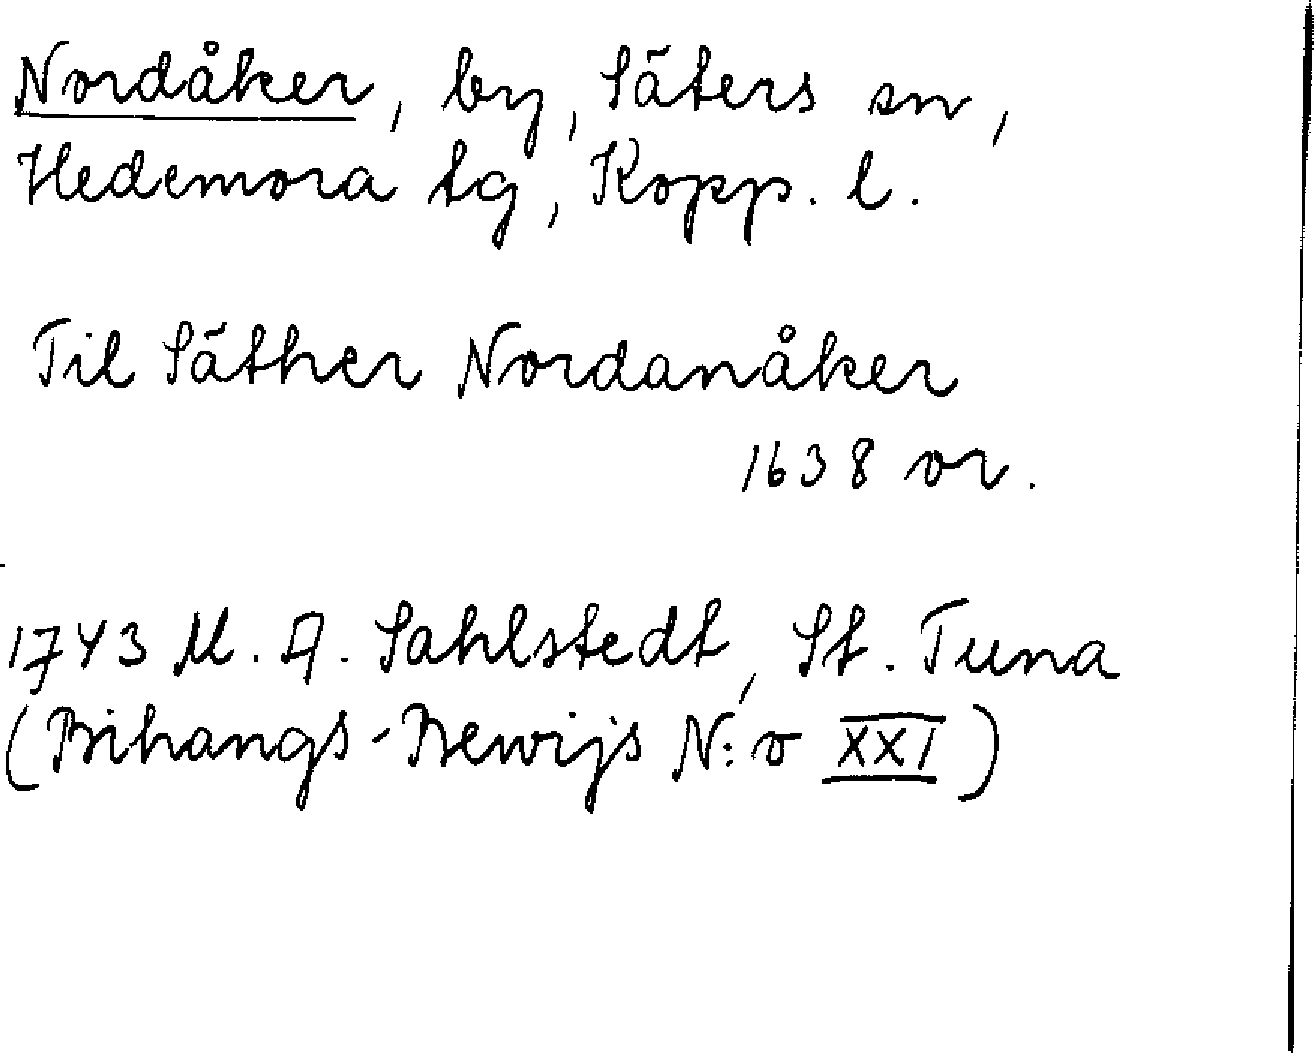 Nordåker, by, Säters sn,
Hedemora tg, Kopp. l.
Til Säther Nordanåker
1638 or.
1743 M. A. Sahlstedt, St. Tuna
(Bihangs-Bewijs N:o XXI)